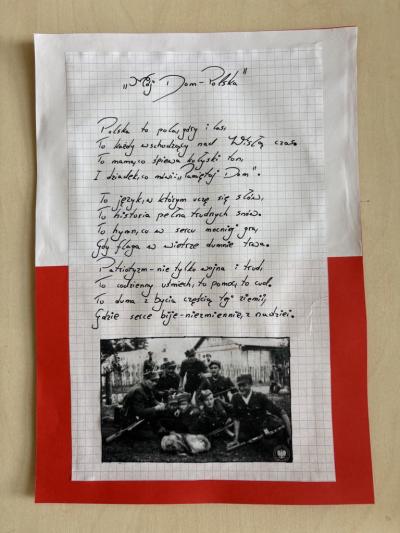 „Mój Dom-Polska"
Polska to pola, góry i las,
To każdy wschodzący nad Wisłą czas.
To mama, co śpiewa kołyski ton,
I dziadek, co mówi: „Pamiętaj Dom".
To język, w którym uczę się słów,
To historia pełna trudnych snów.
To hymn, co w sercu mocniej gra,
Gdy flaga w wietrze dumnie trwa.
Patriotyzm-nie tylko wojna i trud,
To codzienny uśmiech, to pomoc, to cud.
To duma z bycia częścią tej ziemi,
Gdzie serce bije-niezmiennie, z nadziei.